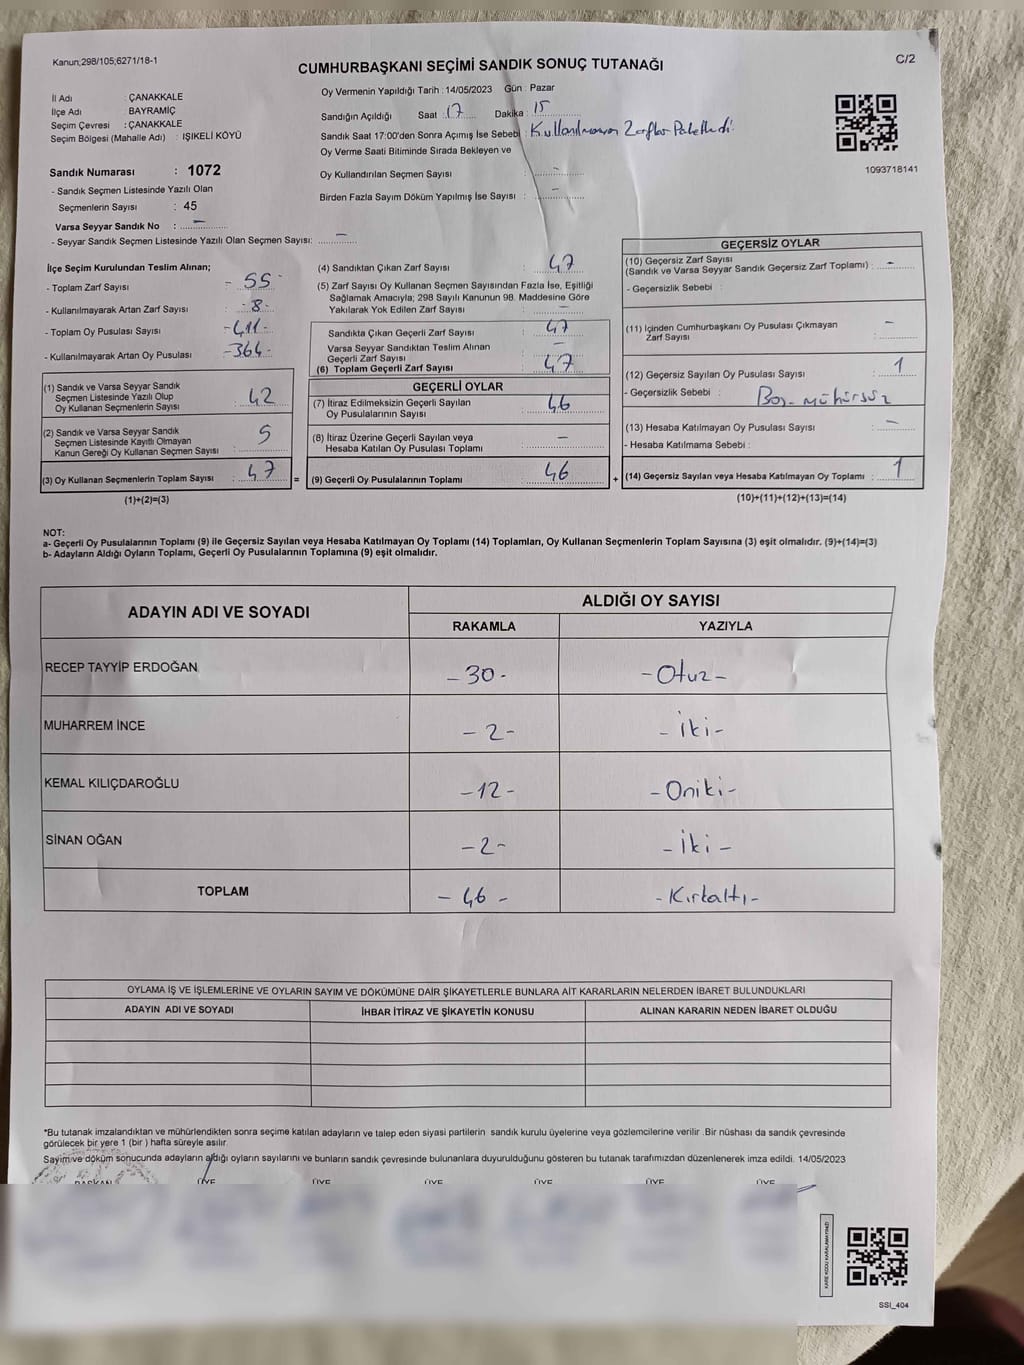 Kanun;298/105;6271/18-1
C/2
CUMHURBAŞKANI SEÇİMİ SANDIK SONUÇ TUTANAĞI
İl Adı : ÇANAKKALE
İlçe Adı : BAYRAMİÇ
Seçim Çevresi : ÇANAKKALE
Seçim Bölgesi (Mahalle Adı) : IŞIKELİ KÖYÜ
Oy Vermenin Yapıldığı Tarih : 14/05/2023 Gün : Pazar
Sandığın Açıldığı Saat : 17 Dakika : 15
Sandık Saat 17:00'den Sonra Açımış İse Sebebi : Kullanılmayan Zarflar Paketledi.
Oy Verme Saati Bitiminde Sırada Bekleyen ve
Oy Kullandırılan Seçmen Sayısı : -
Birden Fazla Sayım Döküm Yapılmış İse Sayısı : -
1093718141
Sandık Numarası : 1072
- Sandık Seçmen Listesinde Yazılı Olan
Seçmenlerin Sayısı : 45
Varsa Seyyar Sandık No : -
- Seyyar Sandık Seçmen Listesinde Yazılı Olan Seçmen Sayısı: -
İlçe Seçim Kurulundan Teslim Alınan;
- Toplam Zarf Sayısı - 55 -
- Kullanılmayarak Artan Zarf Sayısı - 8 -
- Toplam Oy Pusulası Sayısı - 411 -
- Kullanılmayarak Artan Oy Pusulası - 364 -
(1) Sandık ve Varsa Seyyar Sandık
Seçmen Listesinde Yazılı Olup
Oy Kullanan Seçmenlerin Sayısı : 42
(2) Sandık ve Varsa Seyyar Sandık
Seçmen Listesinde Kayıtlı Olmayan
Kanun Gereği Oy Kullanan Seçmen Sayısı : 5
(3) Oy Kullanan Seçmenlerin Toplam Sayısı : 47
(1)+(2)=(3)
=
(4) Sandıktan Çıkan Zarf Sayısı : 47
(5) Zarf Sayısı Oy Kullanan Seçmen Sayısından Fazla İse, Eşitliği
Sağlamak Amacıyla; 298 Sayılı Kanunun 98. Maddesine Göre
Yakılarak Yok Edilen Zarf Sayısı : -
Sandıkta Çıkan Geçerli Zarf Sayısı : 47
Varsa Seyyar Sandıktan Teslim Alınan
Geçerli Zarf Sayısı : -
(6) Toplam Geçerli Zarf Sayısı : 47
GEÇERLİ OYLAR
(7) İtiraz Edilmeksizin Geçerli Sayılan
Oy Pusulalarının Sayısı : 46
(8) İtiraz Üzerine Geçerli Sayılan veya
Hesaba Katılan Oy Pusulası Toplamı : -
(9) Geçerli Oy Pusulalarının Toplamı : 46
+
GEÇERSİZ OYLAR
(10) Geçersiz Zarf Sayısı
(Sandık ve Varsa Seyyar Sandık Geçersiz Zarf Toplamı) : -
- Geçersizlik Sebebi :
(11) İçinden Cumhurbaşkanı Oy Pusulası Çıkmayan
Zarf Sayısı : -
(12) Geçersiz Sayılan Oy Pusulası Sayısı : 1
- Geçersizlik Sebebi : Boş - mühürsüz
(13) Hesaba Katılmayan Oy Pusulası Sayısı : -
- Hesaba Katılmama Sebebi :
(14) Geçersiz Sayılan veya Hesaba Katılmayan Oy Toplamı : 1
(10)+(11)+(12)+(13)=(14)
NOT:
a- Geçerli Oy Pusulalarının Toplamı (9) ile Geçersiz Sayılan veya Hesaba Katılmayan Oy Toplamı (14) Toplamları, Oy Kullanan Seçmenlerin Toplam Sayısına (3) eşit olmalıdır. (9)+(14)=(3)
b- Adayların Aldığı Oyların Toplamı, Geçerli Oy Pusulalarının Toplamına (9) eşit olmalıdır.
ADAYIN ADI VE SOYADI ALDIĞI OY SAYISI
RAKAMLA YAZIYLA
RECEP TAYYİP ERDOĞAN - 30 - - Otuz -
MUHARREM İNCE - 2 - - İki -
KEMAL KILIÇDAROĞLU - 12 - - Oniki -
SİNAN OĞAN - 2 - - İki -
TOPLAM - 46 - - Kırkaltı -
OYLAMA İŞ VE İŞLEMLERİNE VE OYLARIN SAYIM VE DÖKÜMÜNE DAİR ŞİKAYETLERLE BUNLARA AİT KARARLARIN NELERDEN İBARET BULUNDUKLARI
ADAYIN ADI VE SOYADI İHBAR İTİRAZ VE ŞİKAYETİN KONUSU ALINAN KARARIN NEDEN İBARET OLDUĞU
*Bu tutanak imzalandıktan ve mühürlendikten sonra seçime katılan adayların ve talep eden siyasi partilerin sandık kurulu üyelerine veya gözlemcilerine verilir .Bir nüshası da sandık çevresinde
görülecek bir yere 1 (bir ) hafta süreyle asılır.
Sayım ve döküm sonucunda adayların aldığı oyların sayılarını ve bunların sandık çevresinde bulunanlara duyurulduğunu gösteren bu tutanak tarafımızdan düzenlenerek imza edildi. 14/05/2023
BAŞKAN ÜYE ÜYE ÜYE ÜYE ÜYE ÜYE
SSI_404